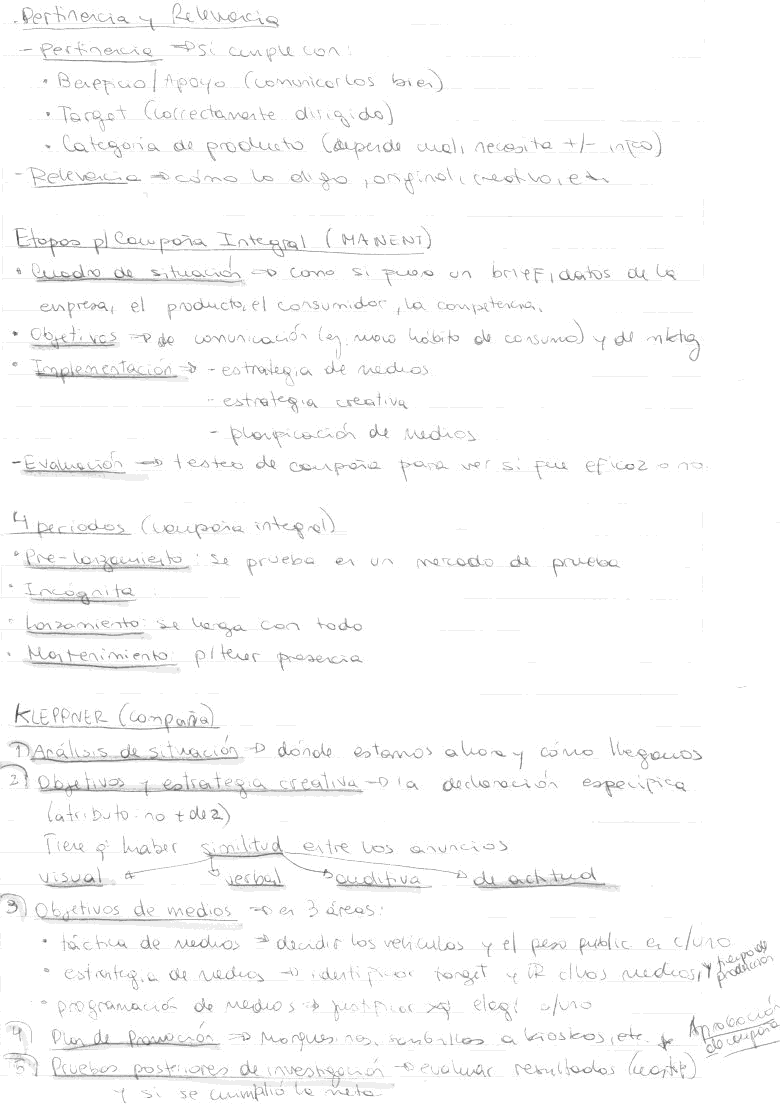 . Pertinencia y Relevancia
- Pertinencia → Si cumple con:
• Beneficio/Apoyo (comunicarlos bien)
• Target (correctamente dirigido)
• Categoría de producto (depende cual, necesita +/- info)
- Relevancia → cómo lo digo, original, creativo, etc
Etapas p/ Campaña Integral (MANENT)
• Cuadro de situación → como si fuera un brief, datos de la
empresa, el producto, el consumidor, la competencia.
• Objetivos → de comunicación (ej. nuevo hábito de consumo) y de mktg
• Implementación → - estrategia de medios
- estrategia creativa
- planificación de medios
- Evaluación → testeo de campaña para ver si fue eficaz o no.
4 periodos (campaña integral)
• Pre-lanzamiento: se prueba en un mercado de prueba
• Incógnita
• Lanzamiento: se larga con todo
• Mantenimiento: p/ tener presencia
KLEPPNER (campaña)
1) Análisis de situación → dónde estamos ahora y cómo llegamos
2) Objetivos y estrategia creativa → la declaración específica
(atributo: no + de 2)
Tiene q' haber similitud entre los anuncios
visual verbal auditiva de actitud
3) Objetivos de medios → en 3 áreas:
• táctica de medios → decidir los vehículos y el peso public. en c/uno
• estrategia de medios → identificar target y c/los medios, y tiempo de producción
• programación de medios → justificar xq' elegí c/uno
4) Plan de Promoción → a kioskos, etc. + Aprobación de campaña
5) Pruebas posteriores de investigación → evaluar resultados
y si se cumplió la meta